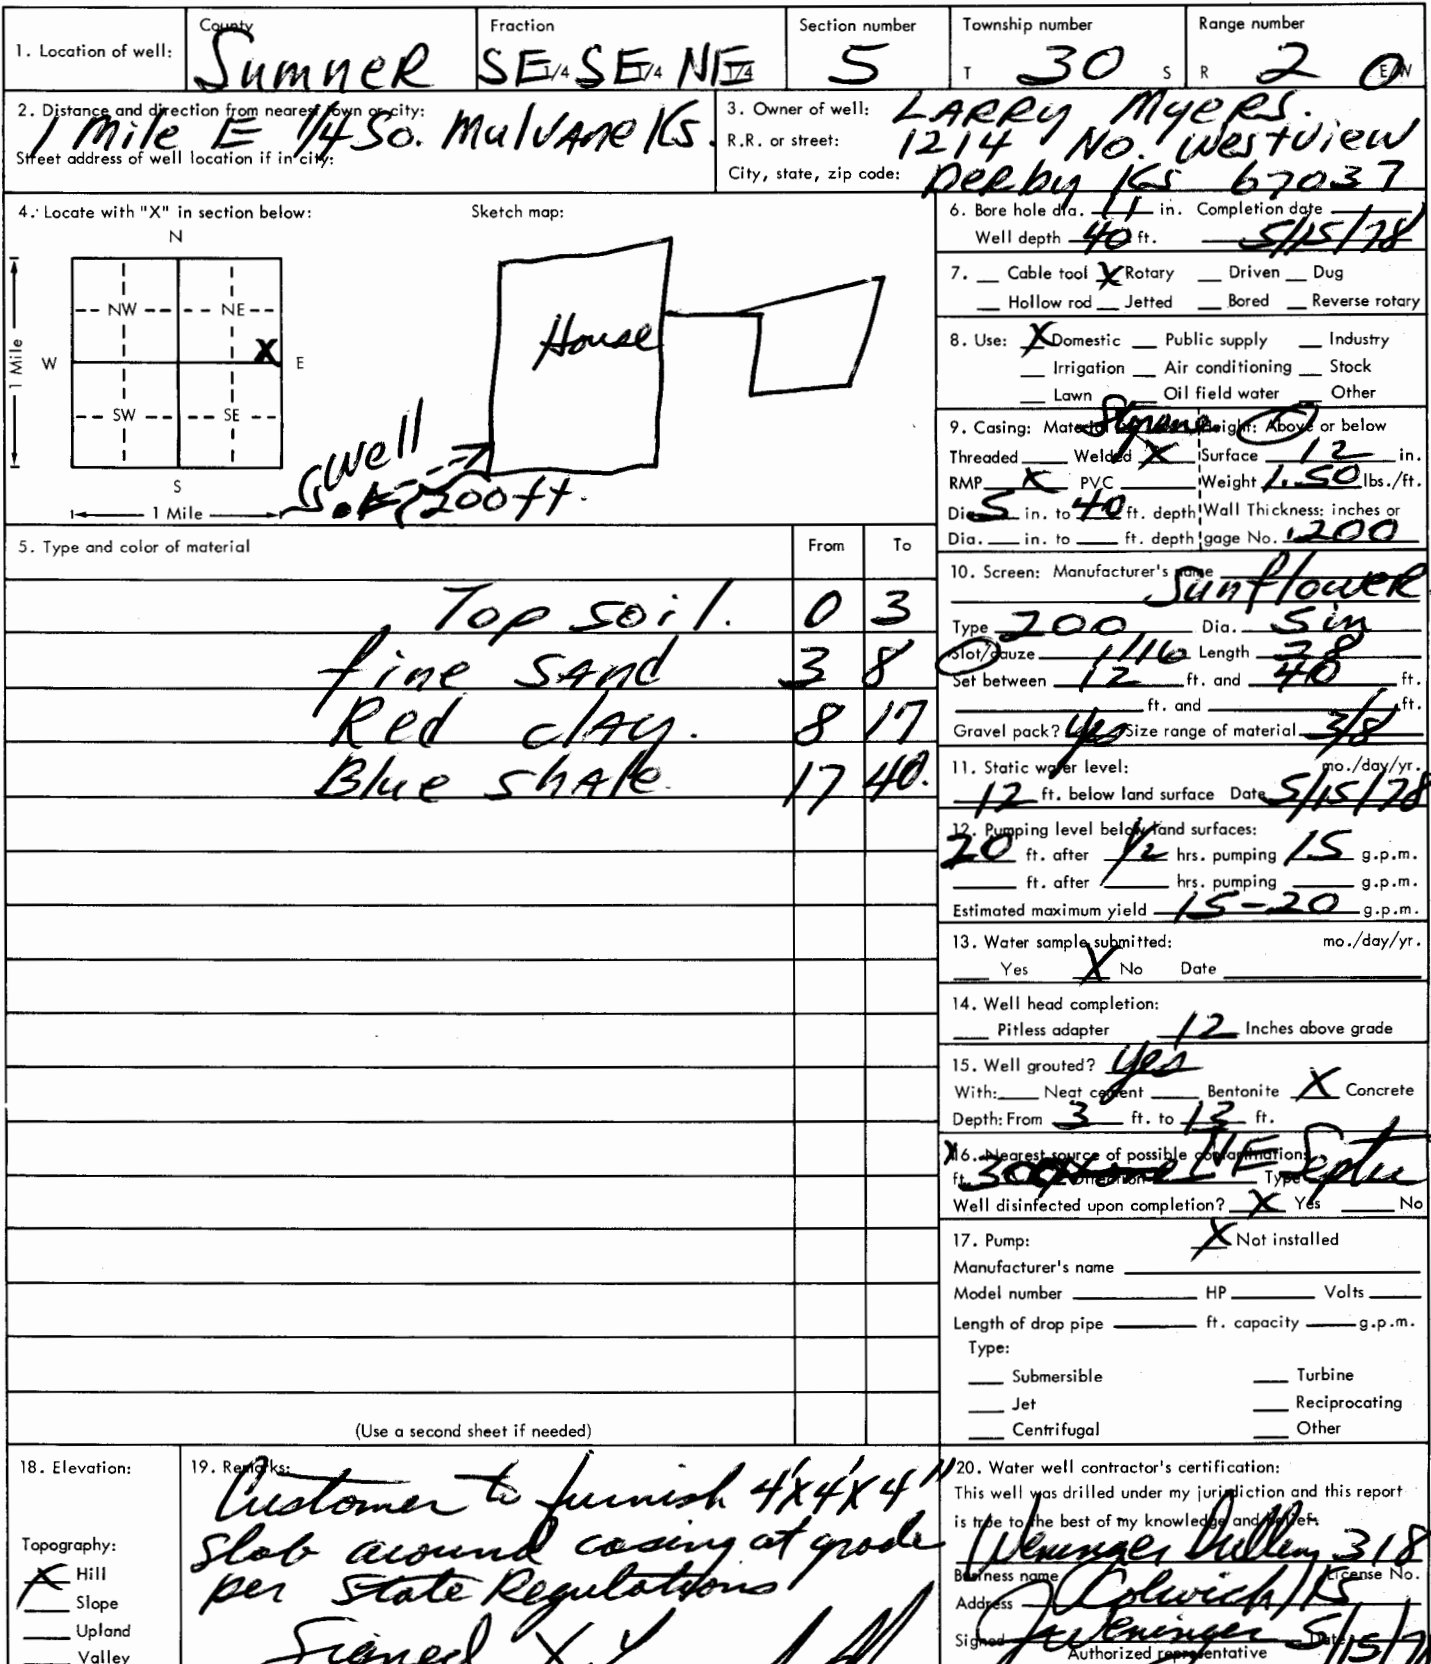 1. Location of well: County Sumner Fraction SE 1/4 SE 1/4 NE 1/4 Section number 5 Township number T 30 S Range number R 2 E/W
2. Distance and direction from nearest town or city: 1 Mile E 1/4 So. Mulvane Ks.
Street address of well location if in city:
3. Owner of well: LARRY Myers.
R.R. or street: 1214 No. Westview
City, state, zip code: Derby Ks 67037
4. Locate with "X" in section below:
N
NW NE
X
W E
SW SE
S
1 Mile
1 Mile
Sketch map:
House
well
200 ft.
5. Type and color of material From To
Top soil. 0 3
fine sand 3 8
Red clay. 8 17
Blue shale. 17 40.
(Use a second sheet if needed)
6. Bore hole dia. 11 in. Completion date
Well depth 40 ft. 5/15/78
7. Cable tool X Rotary Driven Dug
Hollow rod Jetted Bored Reverse rotary
8. Use: X Domestic Public supply Industry
Irrigation Air conditioning Stock
Lawn Oil field water Other
9. Casing: Material Height: Above or below
Threaded Welded X Surface 12 in.
RMP X PVC Weight 1.50 lbs./ft.
Dia. 5 in. to 40 ft. depth Wall Thickness: inches or
Dia. in. to ft. depth gage No. .200
10. Screen: Manufacturer's name
Sunflower
Type 200 Dia. 5 in
Slot/gauze 1/16 Length 38
Set between 12 ft. and 40 ft.
ft. and ft.
Gravel pack? Yes Size range of material 3/8
11. Static water level: mo./day/yr.
12 ft. below land surface Date 5/15/78
12. Pumping level below land surfaces:
20 ft. after 1/2 hrs. pumping 15 g.p.m.
ft. after hrs. pumping g.p.m.
Estimated maximum yield 15-20 g.p.m.
13. Water sample submitted: mo./day/yr.
Yes X No Date
14. Well head completion:
Pitless adapter 12 Inches above grade
15. Well grouted? yes
With: Neat cement Bentonite X Concrete
Depth: From 3 ft. to 13 ft.
16. Nearest source of possible contamination:
ft. 300 Direction NE Type Septic
Well disinfected upon completion? X Yes No
17. Pump: X Not installed
Manufacturer's name
Model number HP Volts
Length of drop pipe ft. capacity g.p.m.
Type:
Submersible Turbine
Jet Reciprocating
Centrifugal Other
18. Elevation:
Topography:
X Hill
Slope
Upland
Valley
19. Remarks:
Customer to furnish 4'x4'x4"
slab around casing at grade
per State Regulations
Signed X
20. Water well contractor's certification:
This well was drilled under my jurisdiction and this report
is true to the best of my knowledge and belief.
Weninger Drilling 318
Business name License No.
Address Colwich Ks
Signed J Weninger Date 5/15/78
Authorized representative